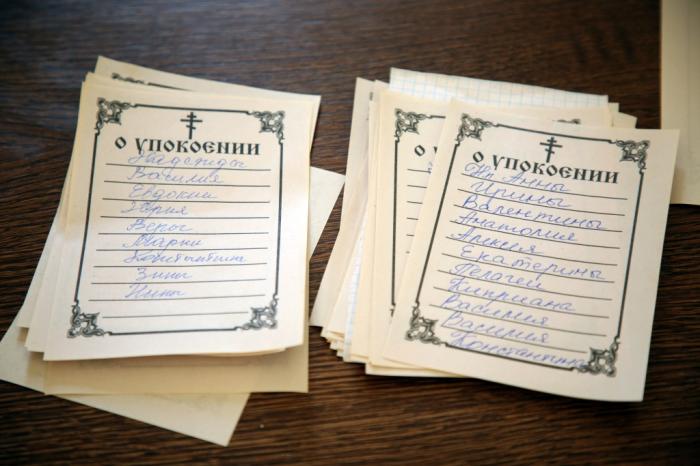 О УПОКОЕНИИ
Надежды
Василия
Евдокии
Юрия
Веры
Марии
Константина
Зины
Нины
О УПОКОЕНИИ
Анны
Ирины
Валентины
Анатолия
Алексея
Екатерины
Пелагеи
Киприана
Василия
Василия
Константина